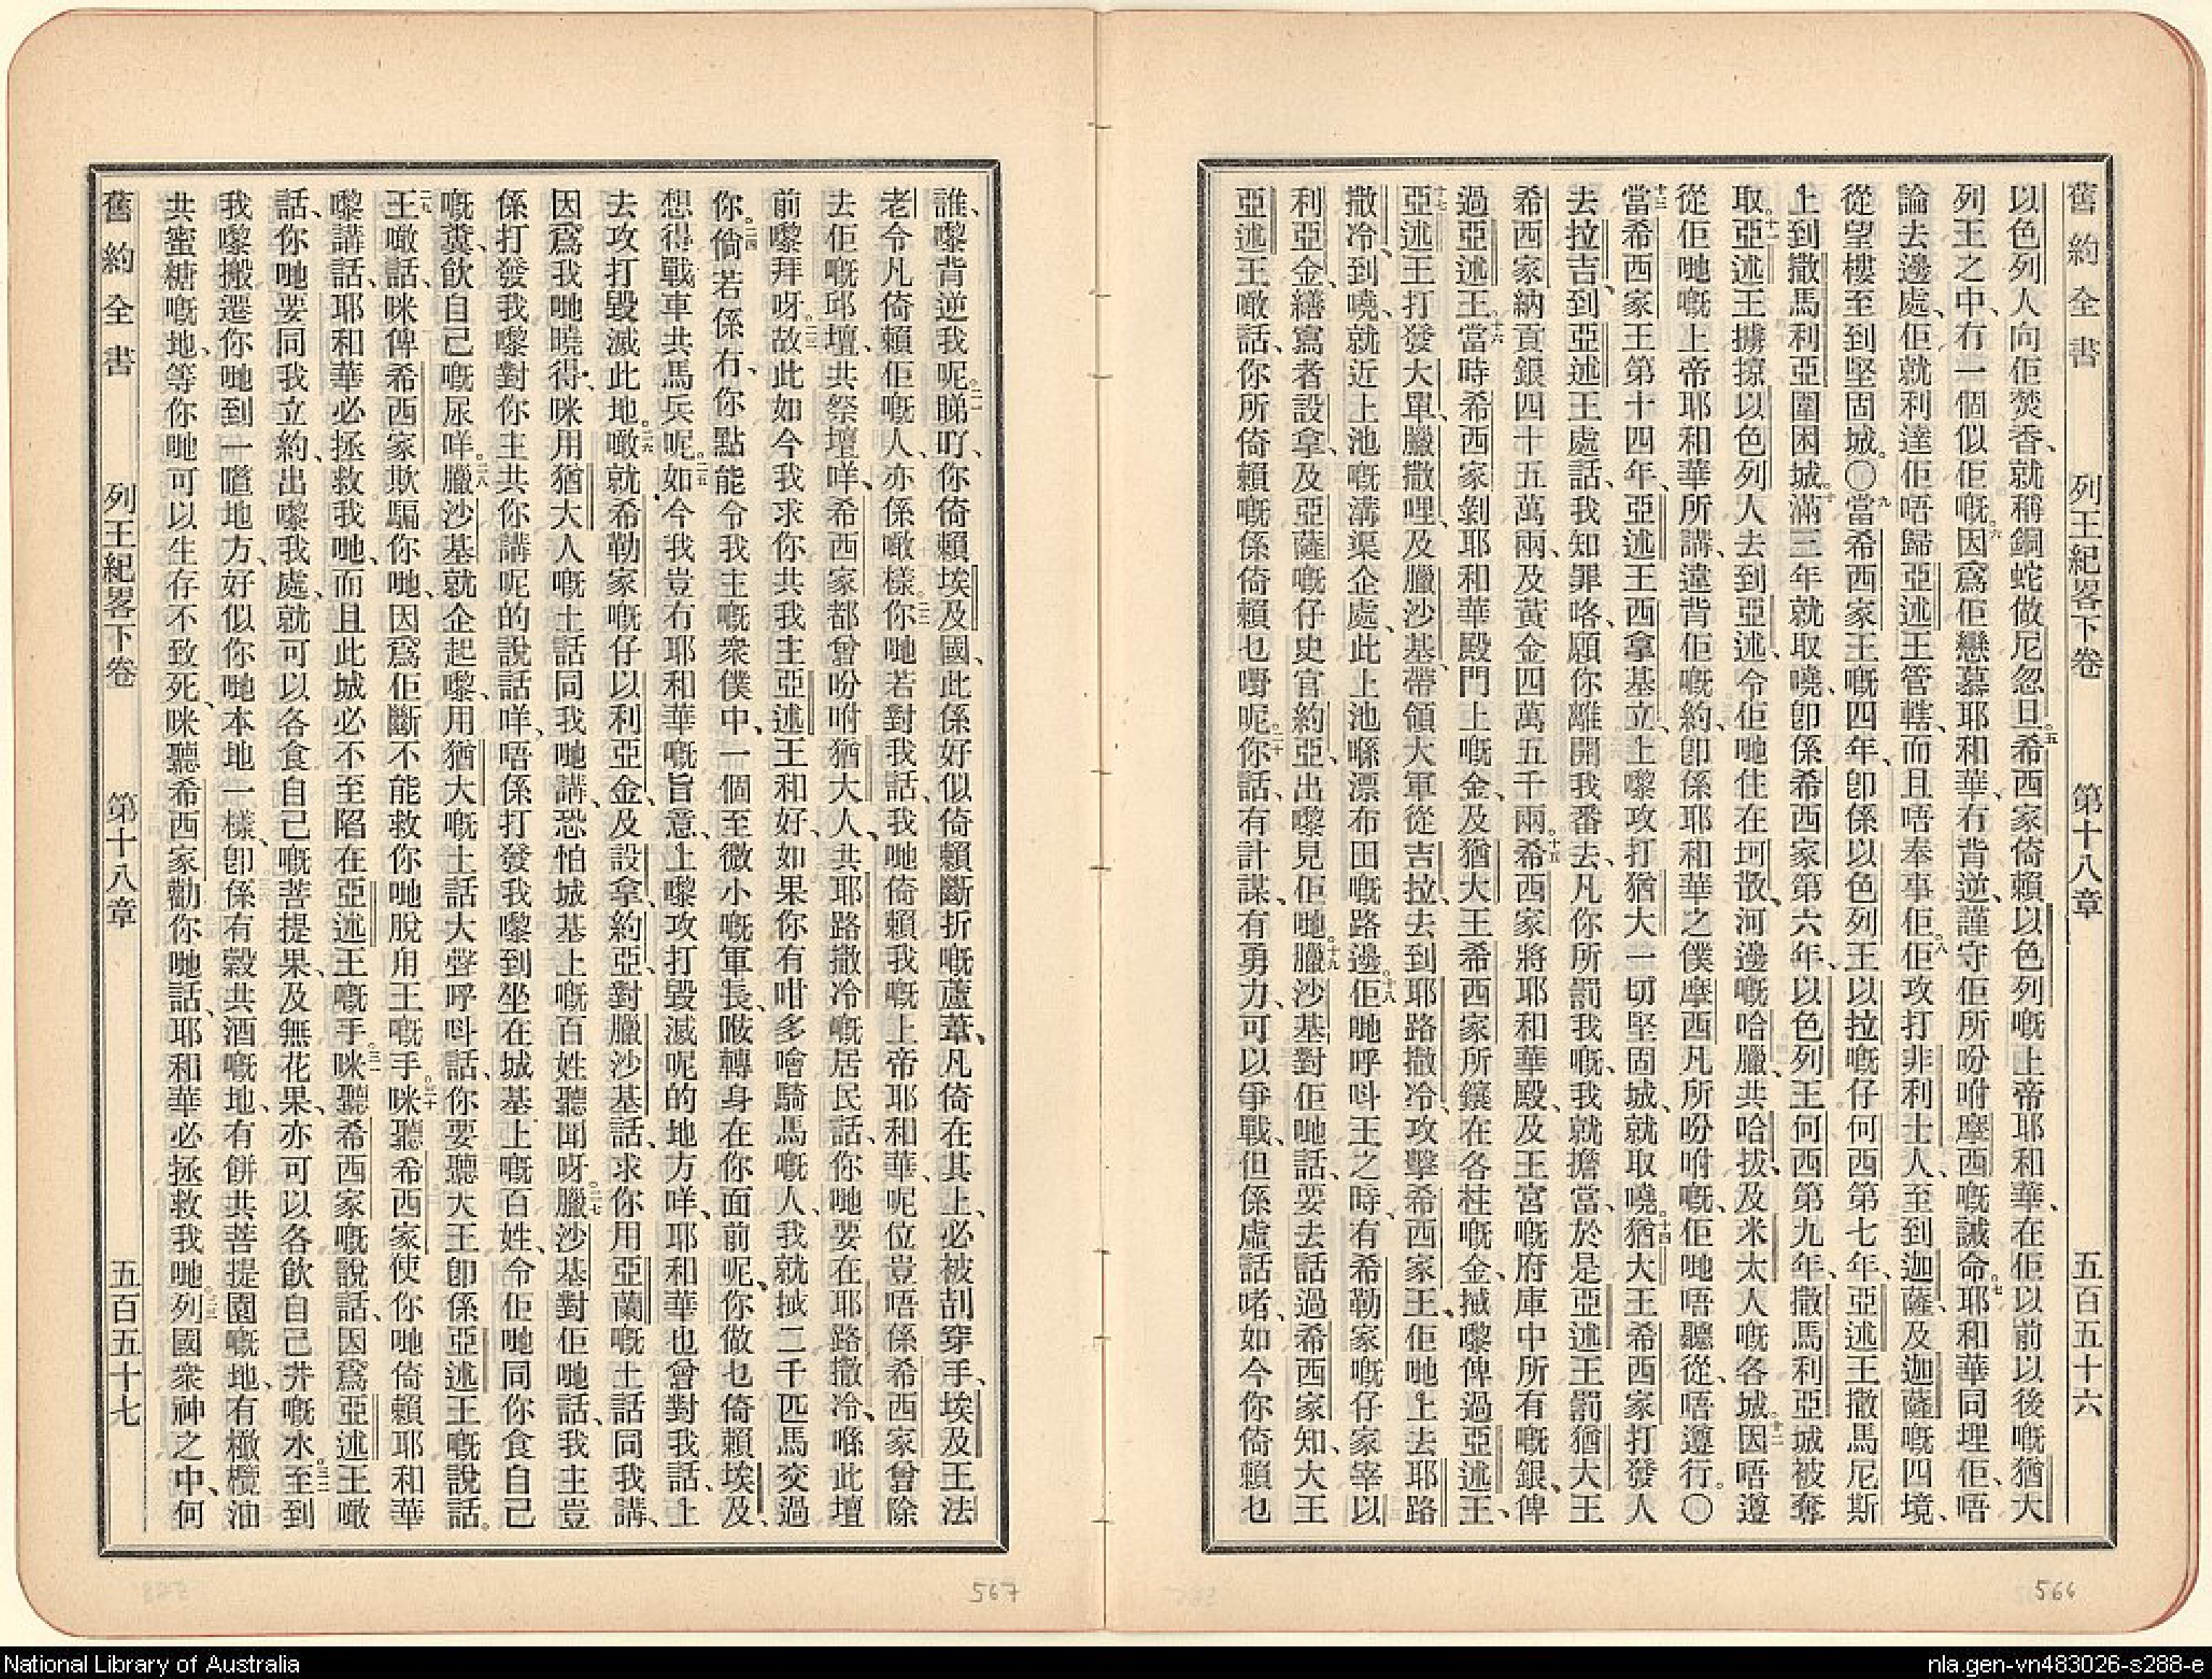 舊約全書 列王紀畧下卷 第十八章 五百五十六
以色列人向佢焚香、就稱銅蛇做尼忽旦。五希西家倚賴以色列嘅上帝耶和華、在佢以前以後嘅猶大
列王之中、冇一個似佢嘅。六因爲佢戀慕耶和華、冇背逆、謹守佢所吩咐摩西嘅誡命。七耶和華同埋佢、唔
論去邊處、佢就利達佢唔歸亞述王管轄、而且唔奉事佢。八佢攻打非利士人、至到迦薩、及迦薩嘅四境、
從望樓至到堅固城。〇九當希西家王嘅四年、卽係以色列王以拉嘅仔何西第七年、亞述王撒馬尼斯
上到撒馬利亞圍困城。十滿三年就取嘵、卽係希西家第六年、以色列王何西第九年、撒馬利亞城被奪
取。十一亞述王擄掠以色列人去到亞述、令佢哋住在坷散、河邊嘅哈臘、共哈拔、及米太人嘅各城。十二因唔遵
從佢哋嘅上帝耶和華所講、違背佢嘅約、卽係耶和華之僕摩西凡所吩咐嘅、佢哋唔聽從、唔遵行。〇
十三當希西家王第十四年、亞述王西拿基立、上嚟攻打猶大一切堅固城、就取嘵。十四猶大王希西家打發人
去拉吉、到亞述王處話、我知罪咯、願你離開我番去、凡你所罰我嘅、我就擔當、於是亞述王罰猶大王
希西家納貢銀四十五萬兩、及黃金四萬五千兩。十五希西家將耶和華殿、及王宮嘅府庫中所有嘅銀、俾
過亞述王。十六當時希西家剝耶和華殿門上嘅金、及猶大王希西家所鑲在各柱嘅金、搣嚟俾過亞述王、
十七亞述王打發大單、臘撒哩、及臘沙基、帶領大軍從吉拉去到耶路撒冷、攻擊希西家王、佢哋上去耶路
撒冷、到嘵、就近上池嘅溝渠企處、此上池喺漂布田嘅路邊。十八佢哋呼呌王之時、有希勒家嘅仔家宰以
利亞金、繕寫者設拿、及亞薩嘅仔史官約亞、出嚟見佢哋。十九臘沙基對佢哋話、要去話過希西家知、大王
亞述王噉話、你所倚賴嘅係倚賴乜嘢呢。二十你話、有計謀、有勇力、可以爭戰、但係虛話啫、如今你倚賴乜
誰、嚟背逆我呢。二一睇吖、你倚賴埃及國、此係好似倚賴斷折嘅蘆葦、凡倚在其上、必被刮穿手、埃及王法
老令凡倚賴佢嘅人、亦係噉樣。二二你哋若對我話、我哋倚賴我嘅上帝耶和華、呢位豈唔係希西家曾除
去佢嘅邱壇、共祭壇咩、希西家都曾吩咐猶大人、共耶路撒冷嘅居民話、你哋要在耶路撒冷、喺此壇
前嚟拜呀。二三故此如今我求你共我主亞述王和好、如果你有咁多噲騎馬嘅人、我就搣二千匹馬交過
你。二四倘若係冇、你點能令我主嘅衆僕中、一個至微小嘅軍長、𠺘轉身在你面前呢、你做乜倚賴埃及、
想得戰車共馬兵呢。二五如今我豈冇耶和華嘅旨意、上嚟攻打毀滅呢的地方咩、耶和華也曾對我話、上
去攻打毀滅此地。二六噉就希勒家嘅仔以利亞金、及設拿、約亞、對臘沙基話、求你用亞蘭嘅土話同我講、
因爲我哋曉得、咪用猶大人嘅土話同我哋講、恐怕城基上嘅百姓聽聞呀。二七臘沙基對佢哋話、我主豈
係打發我嚟對你主共你講呢的說話咩、唔係打發我嚟到坐在城基上嘅百姓、令佢哋同你食自己
嘅糞、飮自己嘅尿咩。二八臘沙基就企起嚟、用猶大嘅土話大聲呼呌話、你要聽大王卽係亞述王嘅說話。
二九王噉話、咪俾希西家欺騙你哋、因爲佢斷不能救你哋脫用王嘅手。三十咪聽希西家使你哋倚賴耶和華
嚟講話、耶和華必拯救我哋、而且此城必不至陷在亞述王嘅手。三一咪聽希西家嘅說話、因爲亞述王噉
話、你哋要同我立約、出嚟我處、就可以各食自己嘅菩提果、及無花果、亦可以各飮自己井嘅水。三二至到
我嚟搬遷你哋到一噠地方、好似你哋本地一樣、卽係有穀共酒嘅地、有餅共菩提園嘅地、有橄欖油
共蜜糖嘅地、等你哋可以生存不致死、咪聽希西家勸你哋話、耶和華必拯救我哋。三三列國衆神之中、何
舊約全書 列王紀畧下卷 第十八章 五百五十七
566
567
National Library of Australia
nla.gen-vn483026-s288-e